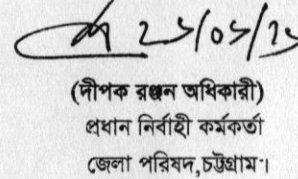 (দীপক রঞ্জন অধিকারী)
প্রধান নির্বাহী কর্মকর্তা
জেলা পরিষদ,চট্টগ্রাম।